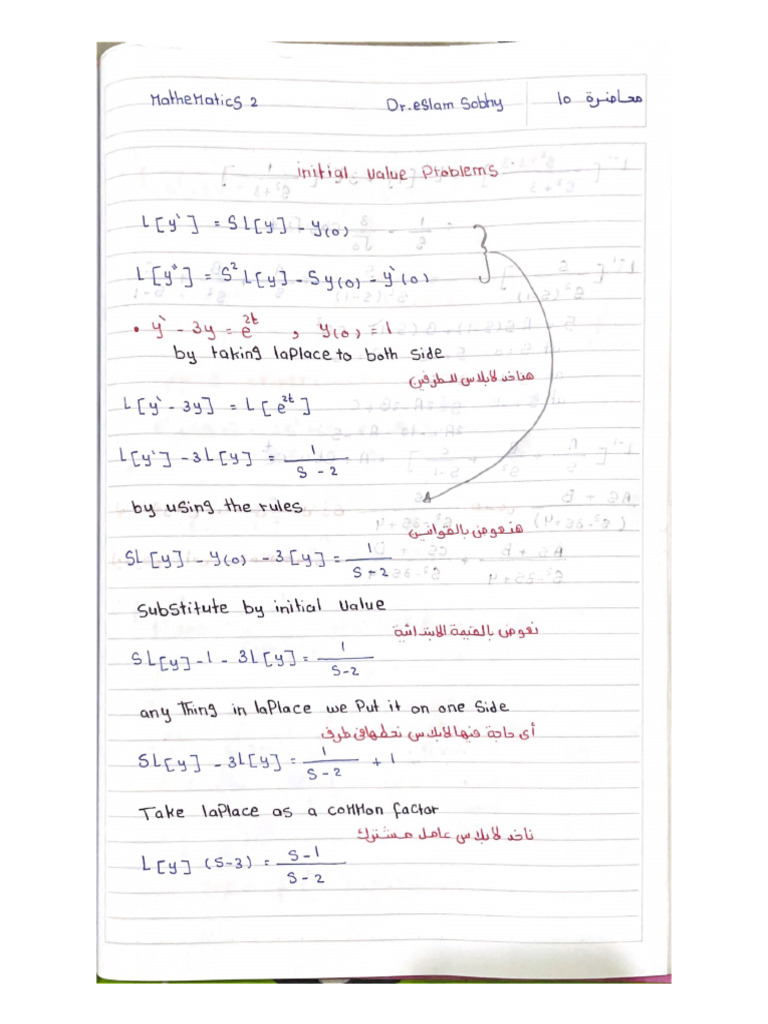 Mathematics 2 Dr. eslam Sobhy محاضرة ١٥
initial value Problems
L[y`] = SL[y] - y(0)
L[y``] = S² L[y] - Sy(0) - y`(0)
• y` - 3y = e^2t , y(0) = 1
by taking laplace to both side
هناخد لابلاس للطرفين
L[y` - 3y] = L[e^2t]
L[y`] - 3L[y] = 1/(S - 2)
by using the rules
هنعوض بالقوانين
SL[y] - y(0) - 3[y] = 1/(S - 2)
Substitute by initial value
نعوض بالقيمة الابتدائية
SL[y] - 1 - 3L[y] = 1/(S-2)
any Thing in laplace we Put it on one Side
أى حاجة فيها لابلاس نحطها فى طرف
SL[y] - 3L[y] = 1/(S - 2) + 1
Take laplace as a common factor
ناخد لابلاس عامل مشترك
L[y] (S-3) = (S-1)/(S-2)